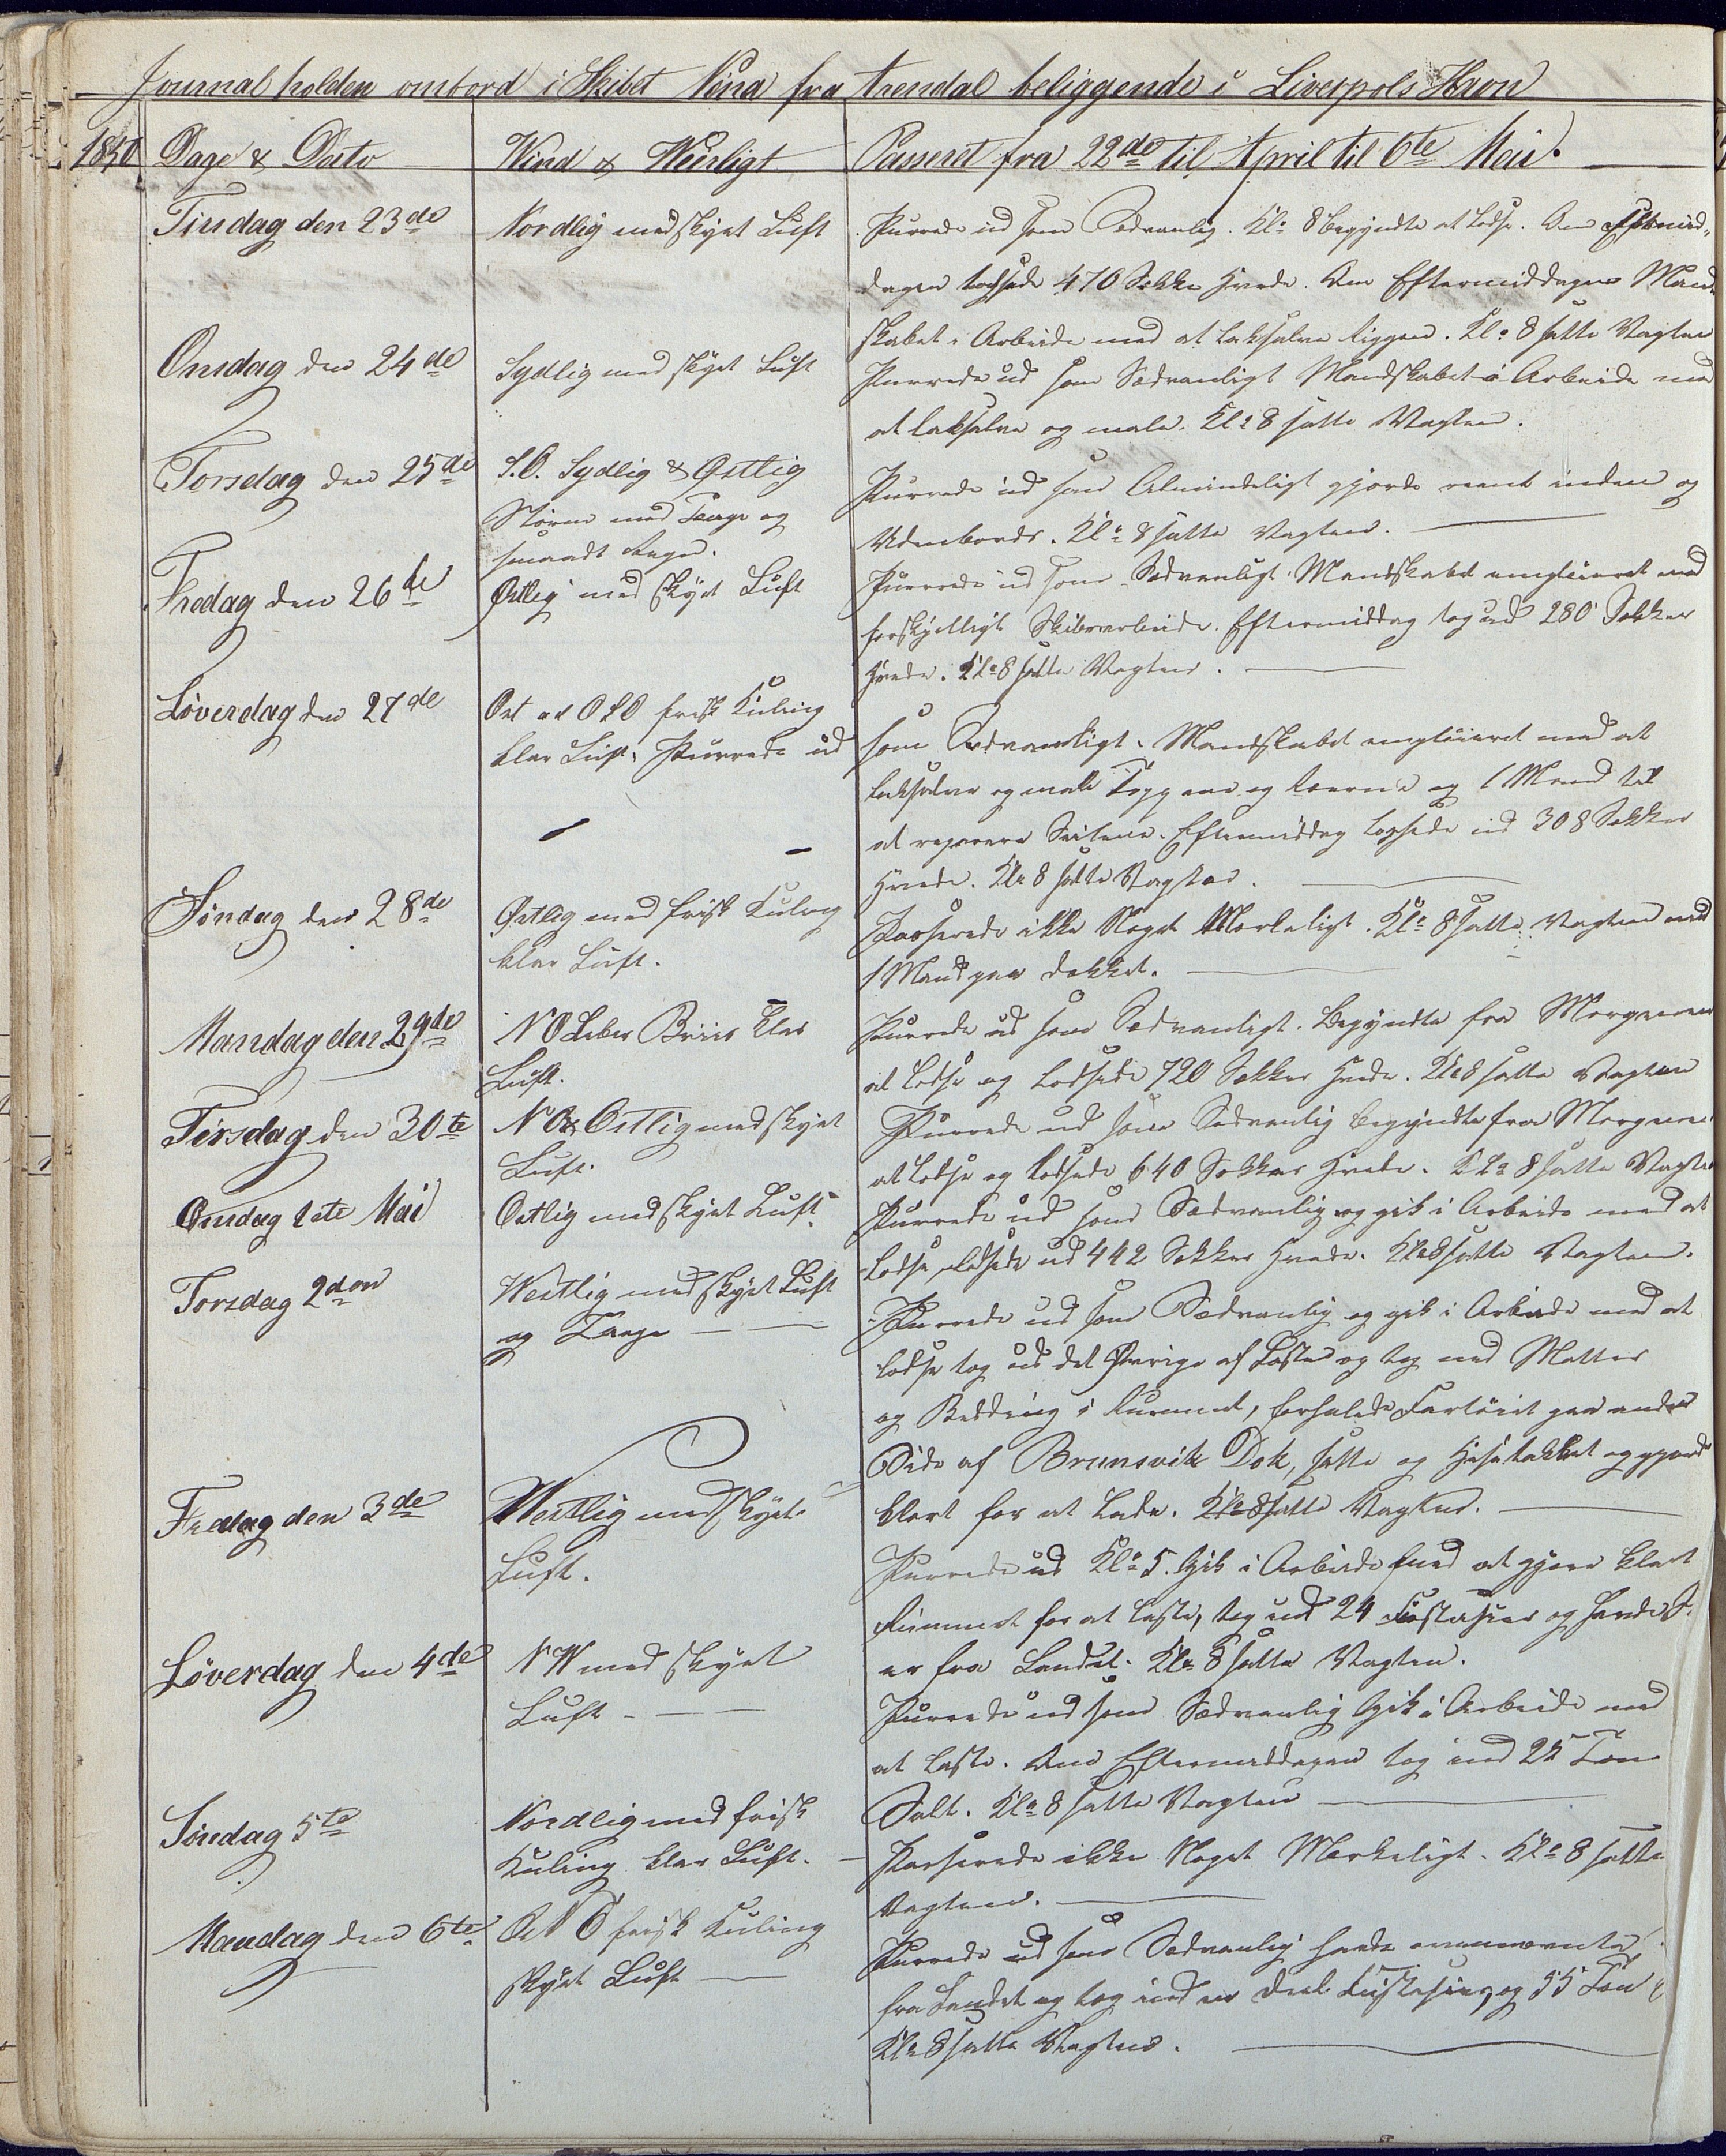 Journal holden ombord i Skibet Nina fra Arendal beliggende i Liverpols Havn
1850 Dage & Dato
Wind & Weirligt
Passeret fra 22de til April til 6te Mai.
Tirsdag den 23de
Nordlig med skyet Luft
Purrede ud som Sædvanlig. Kl: 8 begyndte at lodse. Om Eftermid-
dagen lodsede 470 Sække Hvede. Om Eftermiddagen Mand-
skabet i Arbeide med at laksalve Riggen. Kl: 8 satte Vagten
Onsdag den 24de
Sydlig med skyet Luft
Purrede ud som Sædvanligt Mandskabet i Arbeide med
at laksalve og male. Kl: 8 satte Vagten.
Torsdag den 25de
S.O. Sydlig & Østlig
Storm med Taage og
smaadt Regn.
Purrede ud som Almindeligt gjorde reent inden og
Udenbords. Kl: 8 satte Vagten.
Fredag den 26de
Østlig med skyet Luft
Purrede ud som Sædvanligt. Mandskabet employeret med
forskjelligt Skibsarbeide. Eftermiddag tog ud 280 Sækker
Hvede. Kl: 8 satte Vagten.
Löverdag den 27de
Ost at OSO frisk Kuling
klar Luft. Purrede ud
som Sædvanligt. Mandskabet employeret med at
laksalve og male Toppene og Ræerne og 1 Mand til
at reparere Seilene. Eftermiddag lodsede ud 308 Sækker
Hvede. Kl: 8 satte Vagten.
Söndag den 28de
Østlig med frisk Kuling
klar Luft.
Passerede ikke Noget Mærkeligt. Kl: 8 satte Vagten med
1 Mand paa Dækket.
Mandag den 29de
NO Laber Briis klar
Luft.
Purrede ud som Sædvanligt. Begyndte fra Morgenen
at lodse og lodsede 720 Sækker Hvede. Kl: 8 satte Vagten
Tirsdag den 30te
NO & Ostlig med skyet
Luft.
Purrede ud som Sædvanlig begyndte fra Morgenen
at lodse og lodsede 640 Sækker Hvede. Kl: 8 satte Vagten
Onsdag 1ste Mai
Ostlig med skyet Luft.
Purrede ud som Sædvanlig og gik i Arbeide med at
lodse, lodsede ud 442 Sækker Hvede. Kl: 8 satte Vagten.
Torsdag 2den
Westlig med skyet Luft
og Taage
Purrede ud som Sædvanlig og gik i Arbeide med at
lodse tog ud det Øvrige af Lasten og tog ned Matter
og Bedding i Rummet, forhalede Fartöiet paa anden
Side af Brunsvik Dok, satte og gjorde
klart for at lade. Kl: 8 satte Vagten.
Fredag den 3de
Westlig med skyet
Luft.
Purrede ud Kl: 5. Gik i Arbeide med at gjøre klart
Rummet for at laste, tog ind 24 og havde
er fra Landet. Kl: 8 satte Vagten.
Löverdag den 4de
NW med skyet
Luft
Purrede ud som Sædvanlig Gik i Arbeide med
at laste. Om Eftermiddagen tog ind 25 Ton
Salt. Kl: 8 satte Vagten
Söndag 5te
Nordlig med frisk
Kuling klar Luft.
Passerede ikke Noget Mærkeligt. Kl: 8 satte
Vagten.
Mandag den 6te
frisk Kuling
skyet Luft
Purrede ud som Sædvanlig havde ovennævnte
fra Landet og tog ind en Deel og 55 Ton
Kl: 8 satte Vagten.